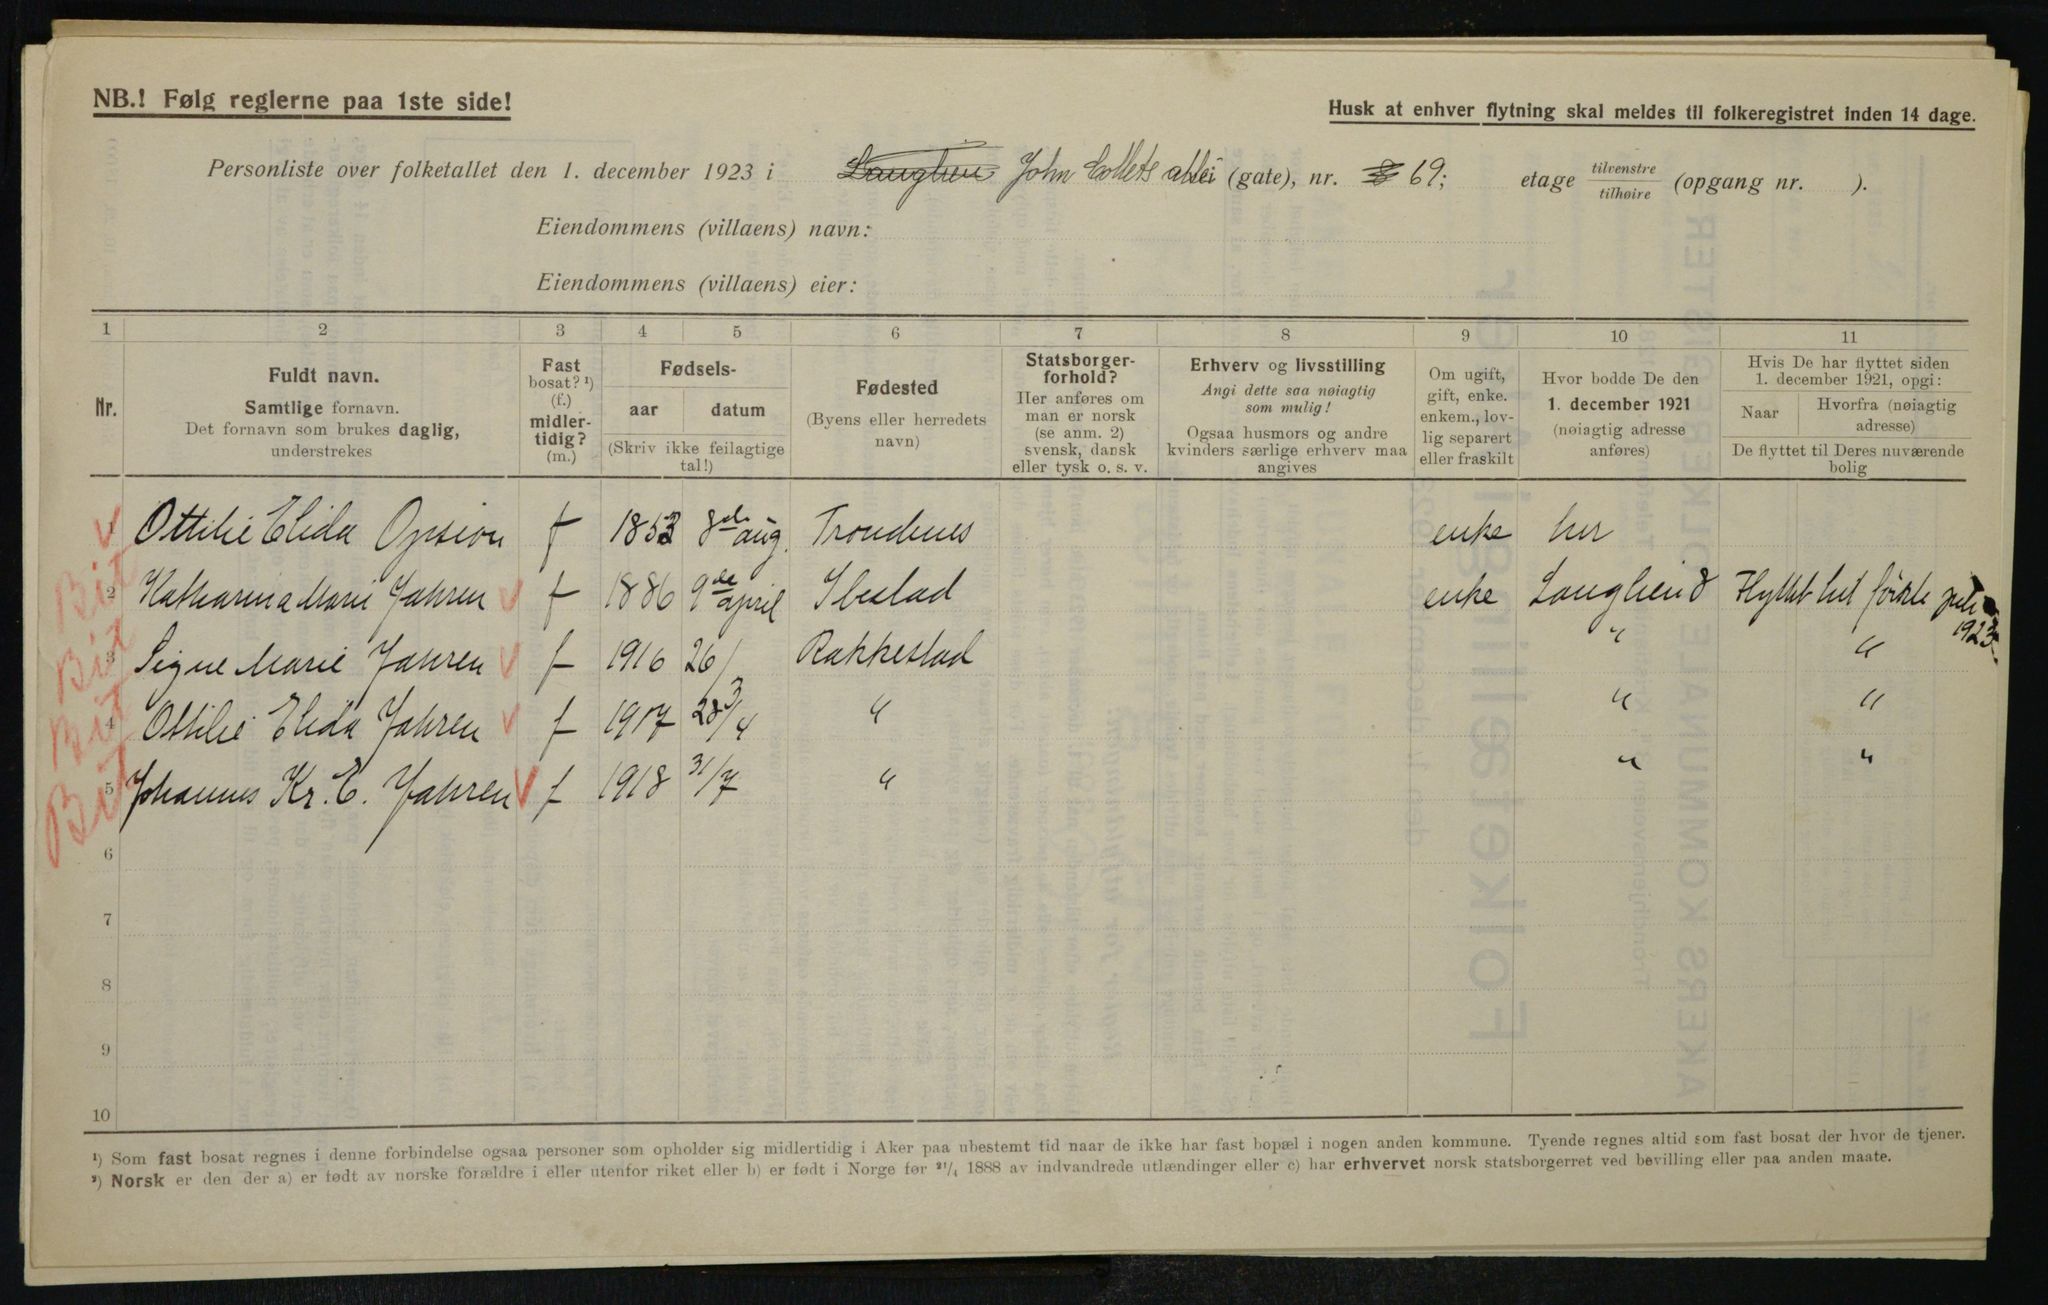 NB.! Følg reglerne paa 1ste side!
Husk at enhver flytning skal meldes til folkeregistret inden 14 dage.
Personliste over folketallet den 1. december 1923 i Langlien John Collets allei (gate), nr. 8 69; etage tilvenstre tilhøire (opgang nr. ).
Eiendommens (villaens) navn:
Eiendommens (villaens) eier:
1 2 3 4 5 6 7 8 9 10 11
Nr.
Fuldt navn.
Samtlige fornavn.
Det fornavn som brukes daglig,
understrekes
Fast
bosat? ¹)
(f.)
midler-
tidig?
(m.)
Fødsels-
aar datum
(Skriv ikke feilagtige
tal!)
Fødested
(Byens eller herredets
navn)
Statsborger-
forhold?
Her anføres om
man er norsk
(se anm. 2)
svensk, dansk
eller tysk o. s. v.
Erhverv og livsstilling
Angi dette saa nøiagtig
som mulig!
Ogsaa husmors og andre
kvinders særlige erhverv maa
angives
Om ugift,
gift, enke.
enkem., lov-
lig separert
eller fraskilt
Hvor bodde De den
1. december 1921
(nøiagtig adresse
anføres)
Hvis De har flyttet siden
1. december 1921, opgi:
Naar Hvorfra (nøiagtig
adresse)
De flyttet til Deres nuværende
bolig
1 Ottilie Elida Opsion f 1853 8de aug. Trondenes enke her
Bit 2 Katharina Marie Jahren f 1886 9de april Ibestad enke Langlien 8 Flyttet hit første juli 1923
Bit 3 Signe Marie Jahren f 1916 26/3 Rakkestad " "
Bit 4 Ottilie Elida Jahren f 1917 28/4 " " "
Bit 5 Johannes Kr. E. Jahren f 1918 31/7 " " "
6
7
8
9
10
¹) Som fast bosat regnes i denne forbindelse ogsaa personer som opholder sig midlertidig i Aker paa ubestemt tid naar de ikke har fast bopæl i nogen anden kommune. Tyende regnes altid som fast bosat der hvor de tjener.
²) Norsk er den der a) er født av norske forældre i eller utenfor riket eller b) er født i Norge før ²¹/₄ 1888 av indvandrede utlændinger eller c) har erhvervet norsk statsborgerret ved bevilling eller paa anden maate.